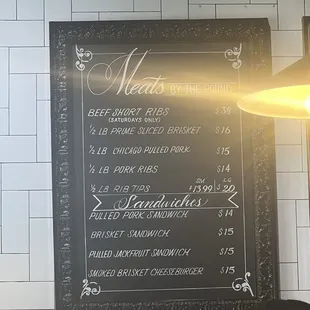 Meats BY THE POUND
BEEF SHORT RIBS $36
(SATURDAYS ONLY)
½ LB PRIME SLICED BRISKET $16
½ LB CHICAGO PULLED PORK $15
½ LB PORK RIBS $14
½ LB RIB TIPS $13.99 $20
Sandwiches
PULLED PORK SANDWICH $14
BRISKET SANDWICH $15
PULLED JACKFRUIT SANDWICH $15
SMOKED BRISKET CHEESEBURGER $15